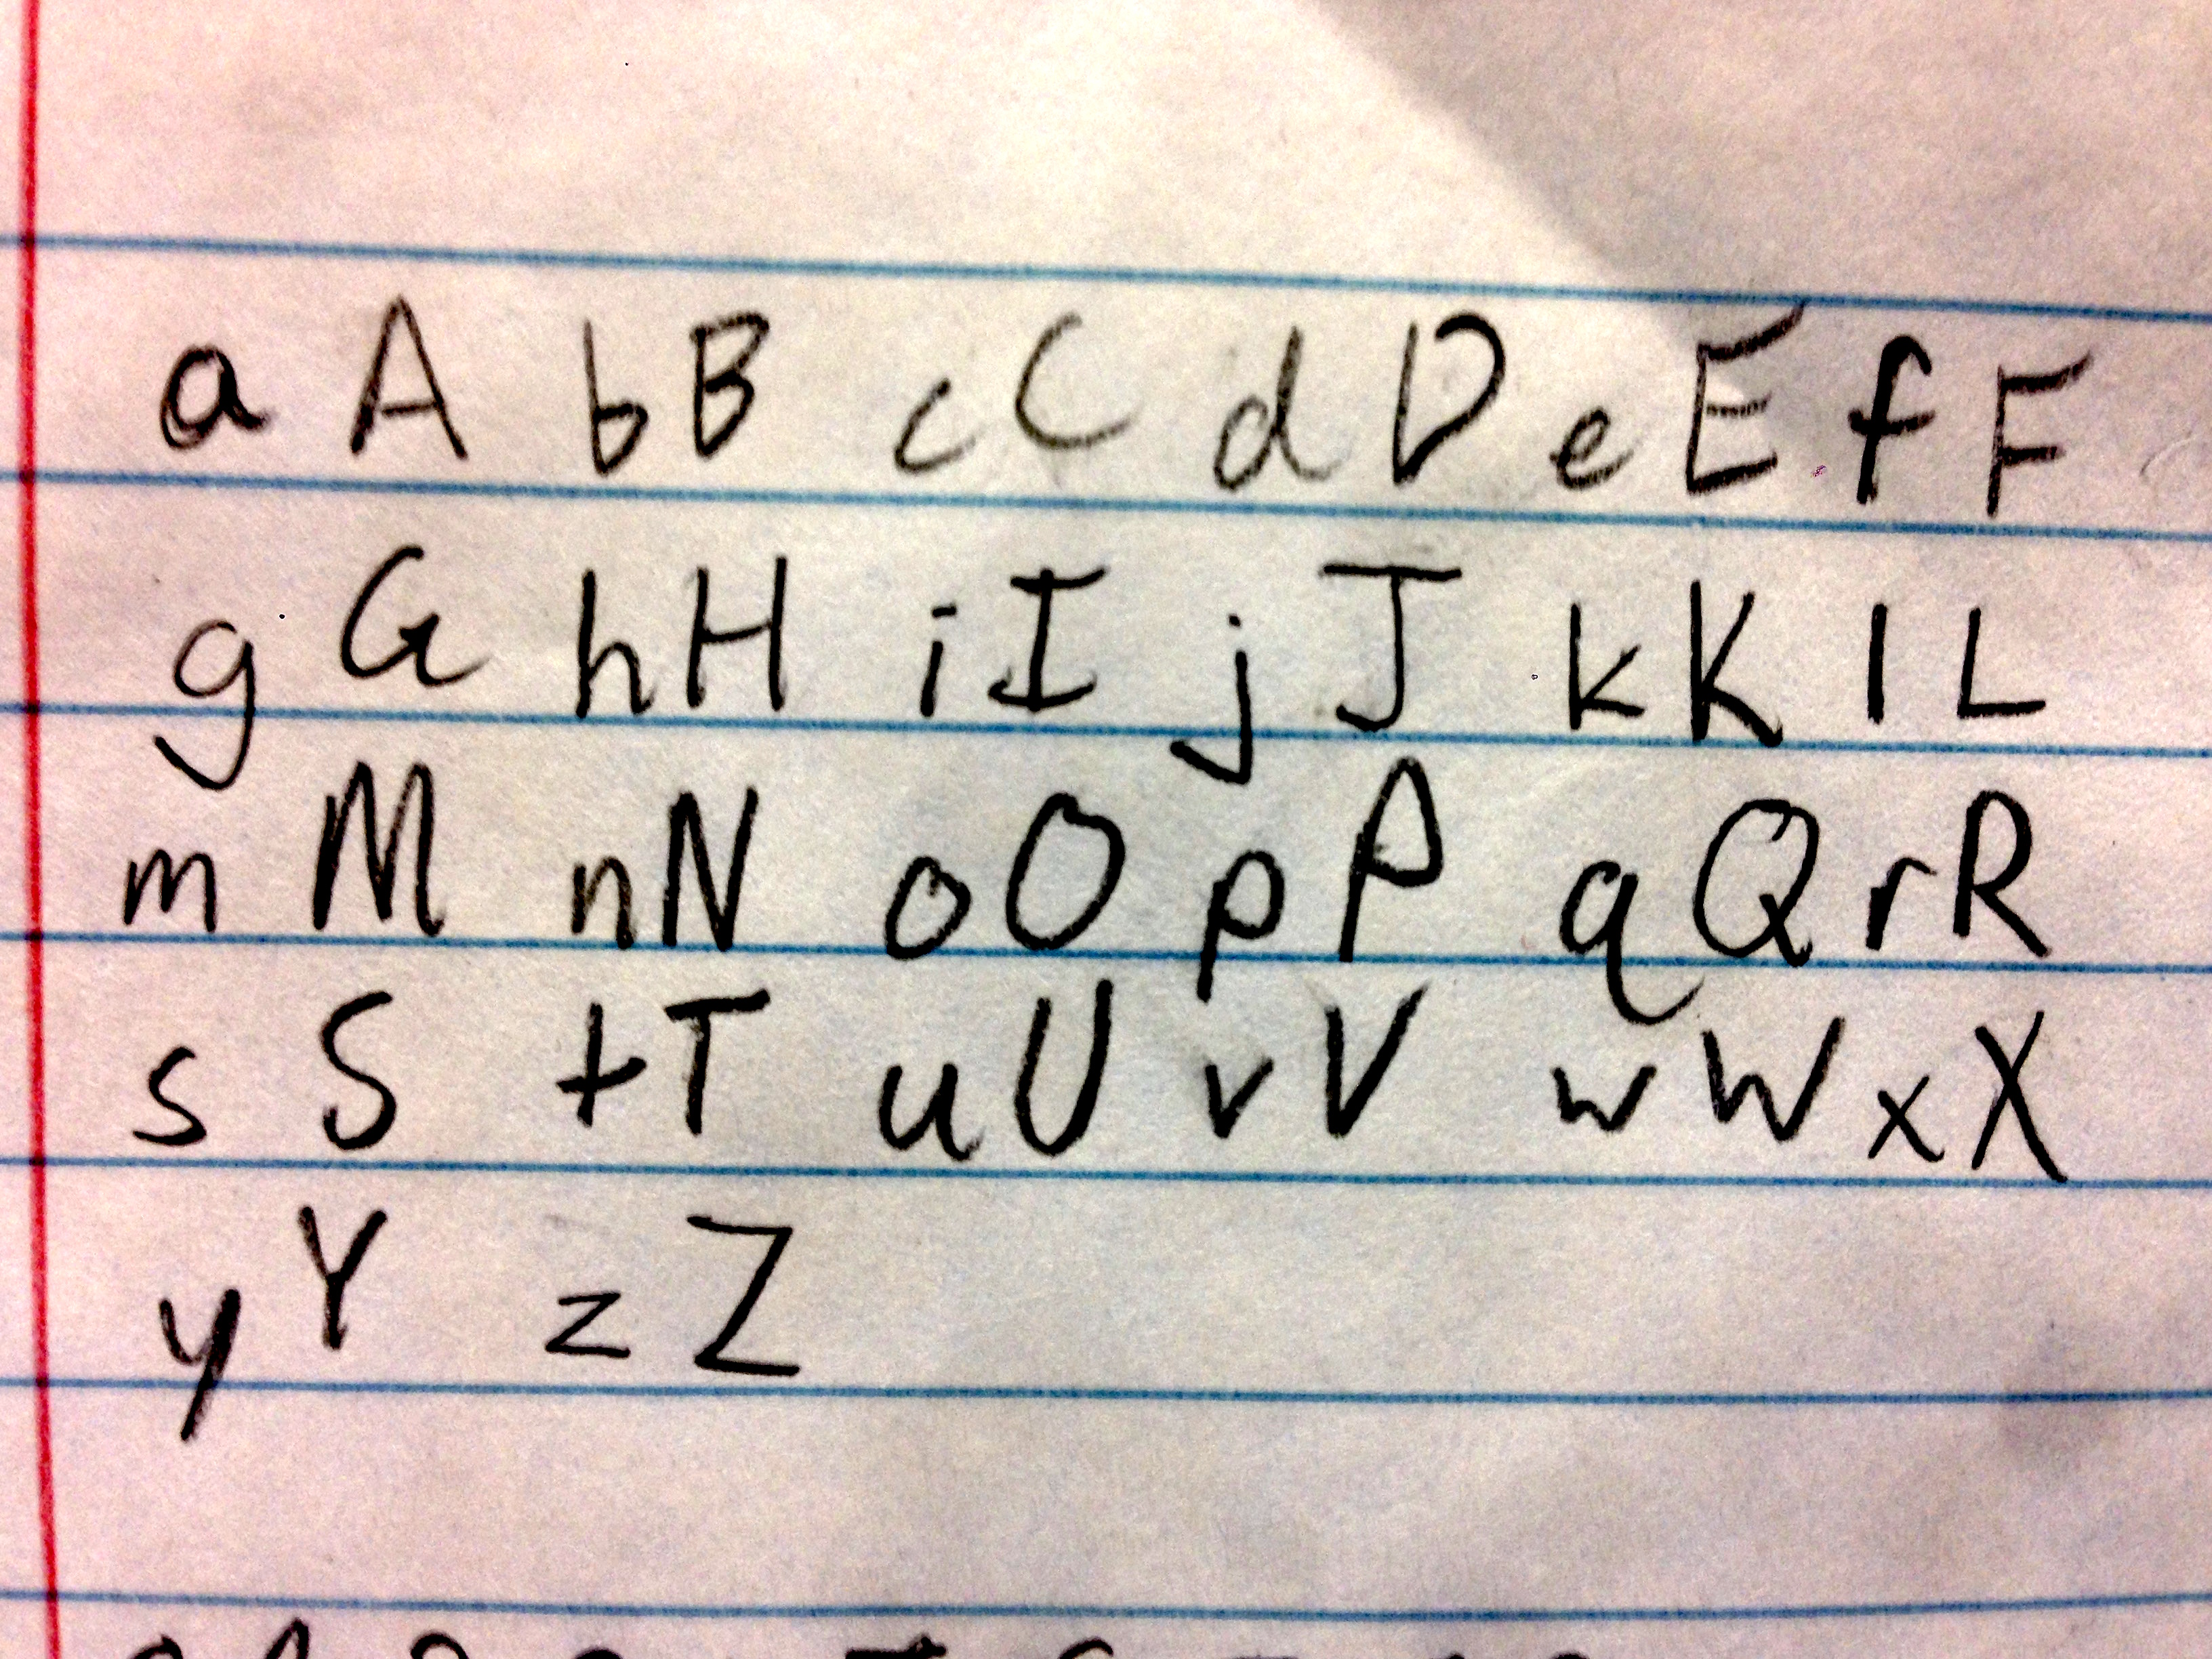 a A b B c C d D e E f F
g G h H i I j J k K l L
m M n N o O p P q Q r R
s S t T u U v V w W x X
y Y z Z